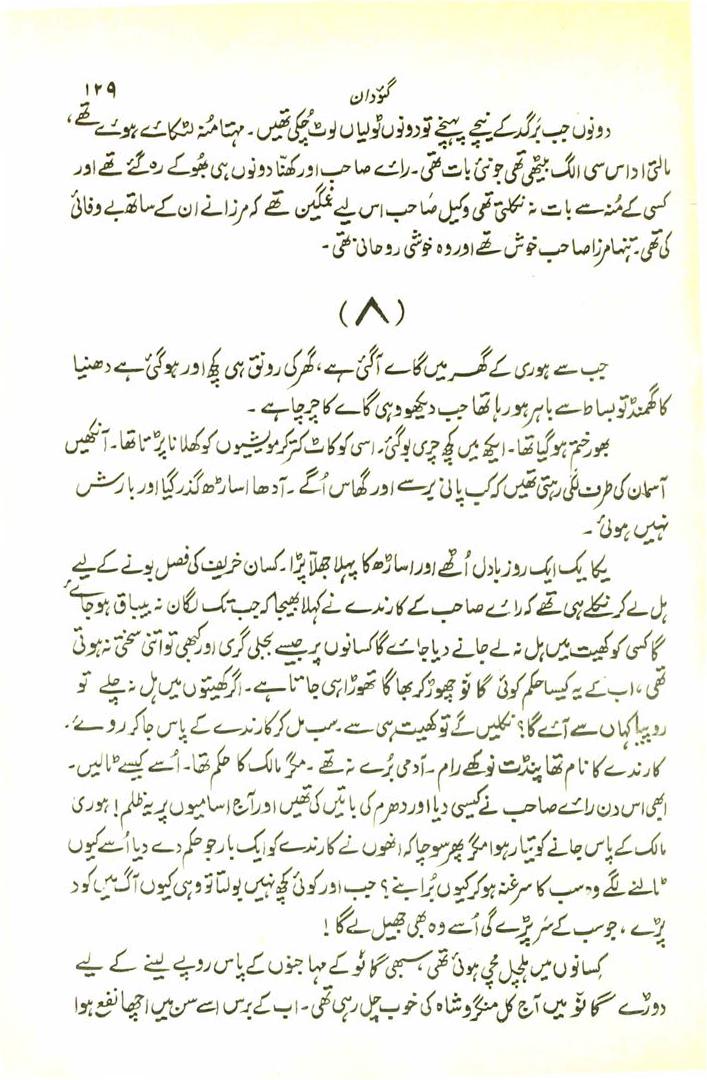 گئودان ۱۲۹
دونوں جب برگد کے نیچے پہنچے تو دونوں ٹولیاں لوٹ چکی تھیں۔ مہتا منہ لٹکائے ہوئے تھے،
مالتی اداس سی الگ بیٹھی تھی جو نئی بات تھی۔ رائے صاحب اور کھنا دونوں ہی بھوکے رہ گئے تھے اور
کسی کے منہ سے بات نہ نکلتی تھی وکیل صاحب اس لیے غمگین تھے کہ مرزا نے ان کے ساتھ بے وفائی
کی تھی۔ تنہا مرزا صاحب خوش تھے اور وہ خوشی روحانی تھی۔
(۸)
جب سے ہوری کے گھر میں گائے آ گئی ہے، گھر کی رونق ہی کچھ اور ہو گئی ہے دھنیا
کا گھمنڈ تو بساط سے باہر ہو رہا تھا جب دیکھو وہی گائے کا چرچا ہے۔
بھور ختم ہو گیا تھا۔ ایکھ میں کچھ چری بو گئی۔ اسی کو کاٹ کتر کر مویشیوں کو کھلانا پڑتا تھا۔ آنکھیں
آسمان کی طرف لگی رہتی تھیں کہ کب پانی برسے اور گھاس اُگے۔ آدھا اساڑھ گذر گیا اور بارش
نہیں ہوئی۔
یکا یک ایک روز بادل اُٹھے اور اساڑھ کا پہلا جھلّا پڑا۔ کسان خریف کی فصل بونے کے لیے
ہل لے کر نکلے ہی تھے کہ رائے صاحب کے کارندے نے کہلا بھیجا کہ جب تک لگان نہ بیباق ہو جائے
گا کسی کو کھیت میں ہل نہ لے جانے دیا جائے گا کسانوں پر جیسے بجلی گری اور کبھی تو اتنی سختی نہ ہوتی
تھی، اب کے یہ کیسا حکم کوئی گانو چھوڑ کر بھاگا تھوڑا ہی جاتا ہے۔ اگر کھیتوں میں ہل نہ چلے تو
روپیا کہاں سے آئے گا؟ نکلیں گے تو کھیت ہی سے۔ سب مل کر کارندے کے پاس جا کر روئے۔
کارندے کا نام تھا پنڈت نوکھے رام۔ آدمی بُرے نہ تھے۔ مگر مالک کا حکم تھا۔ اُسے کیسے ٹالیں۔
ابھی اس دن رائے صاحب نے کیسی دیا اور دھرم کی باتیں کی تھیں اور آج اسامیوں پر یہ ظلم! ہوری
مالک کے پاس جانے کو تیار ہوا مگر پھر سوچا کہ انھوں نے کارندے کو ایک بار جو حکم دے دیا اُسے کیوں
ٹالنے لگے وہ سب کا سرغنہ ہو کر کیوں بُرا بنے؟ جب اور کوئی کچھ نہیں بولتا تو وہی کیوں آگ میں کود
پڑے، جو سب کے سَر پڑے گی اُسے وہ بھی جھیل لے گا!
کسانوں میں ہلچل مچی ہوئی تھی، سبھی گانو کے مہاجنوں کے پاس روپے لینے کے لیے
دوڑے گانو میں آج کل منگرو شاہ کی خوب چل رہی تھی۔ اب کے برس اسے سن میں اچھا نفع ہوا